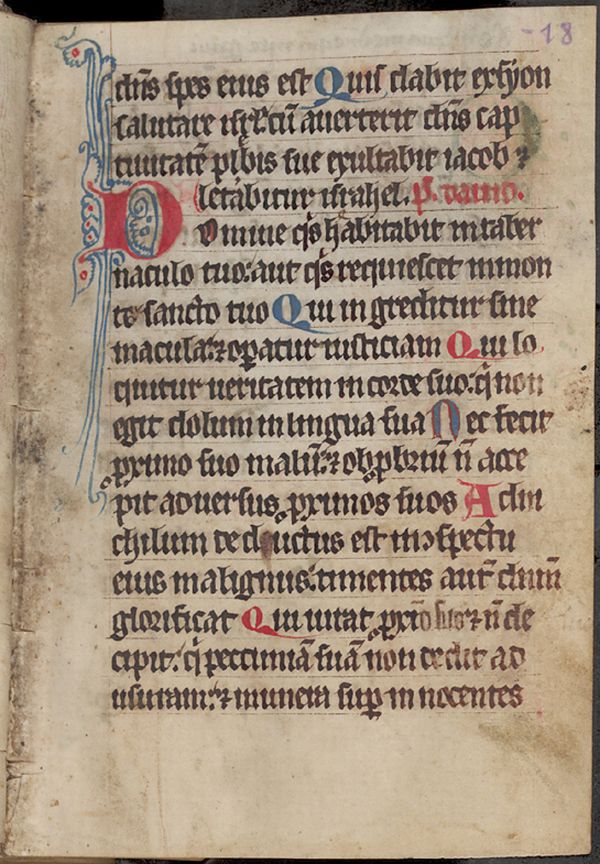 -18
dn̄s spes eius est Quis dabit ex syon
salutare isrł Cū averterit dn̄s cap
tivitatē plebis sue exultabit iacob ⁊
letabitur israhel. P̄. david.
Domine q̄s habitabit in taber
naculo tuo: aut q̄s requiescet in mon
te sancto tuo Qui ingreditur sine
macula: ⁊ opatur iusticiam Qui lo
quitur ueritatem in corde suo: q̄ non
egit dolum in lingua sua Nec fecit
ꝓximo suo malū: ⁊ obꝓbriū n̄ acce
pit adversus ꝓximos suos Ad ni
chilum deductus est in ↄspectu
eius malignus: timentes aut̄ dn̄m
glorificat Qui iurat ꝓxīo suo ⁊ n̄ de
cipit: q̄ peccuniā suā non dedit ad
usuram: ⁊ munera suꝑ innocentes